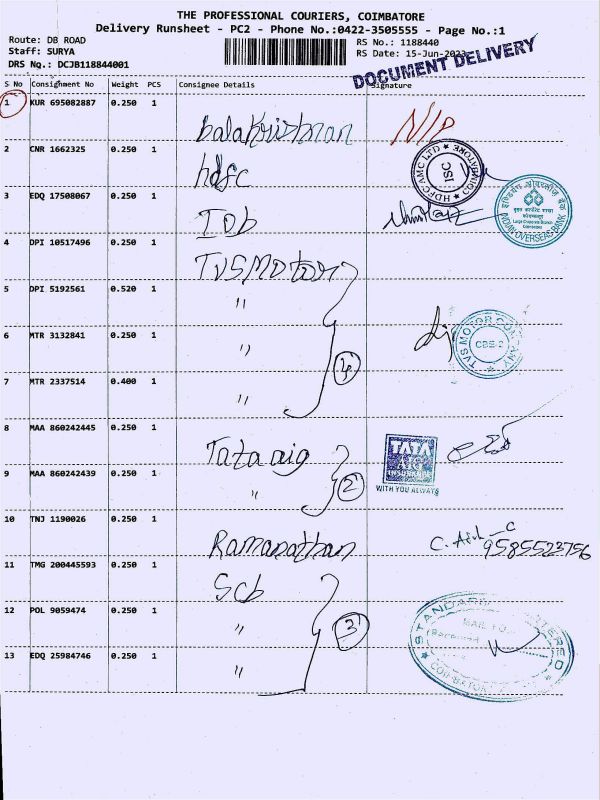 THE PROFESSIONAL COURIERS, COIMBATORE
Delivery Runsheet - PC2 - Phone No.:0422-3505555 - Page No.:1
Route: DB ROAD
Staff: SURYA
DRS No.: DCJB118844001
RS No.: 1188440
RS Date: 15-Jun-2023
DOCUMENT DELIVERY
S No Consignment No Weight PCS Consignee Details Signature
1 KUR 695082887 0.250 1 balakrishnan N/P
2 CNR 1662325 0.250 1 hdfc
HDFC AMC LTD ISC COIMBATORE
3 EDQ 17508067 0.250 1 Iob
इण्डियन ओवरसीज़ बैंक
INDIAN OVERSEAS BANK
4 DPI 10517496 0.250 1 TVS Motor
5 DPI 5192561 0.520 1 "
6 MTR 3132841 0.250 1 " 4
TVS MOTOR COMPANY CBE-2
7 MTR 2337514 0.400 1 "
8 MAA 860242445 0.250 1 Tata aig
TATA AIG INSURANCE
WITH YOU ALWAYS
9 MAA 860242439 0.250 1 " 2
10 TNJ 1190026 0.250 1 Ramanathan
9585523756
11 TMG 200445593 0.250 1 Scb
12 POL 9059474 0.250 1 " 3
STANDARD CHARTERED
MAIL
Received
COIMBATORE
13 EDQ 25984746 0.250 1 "